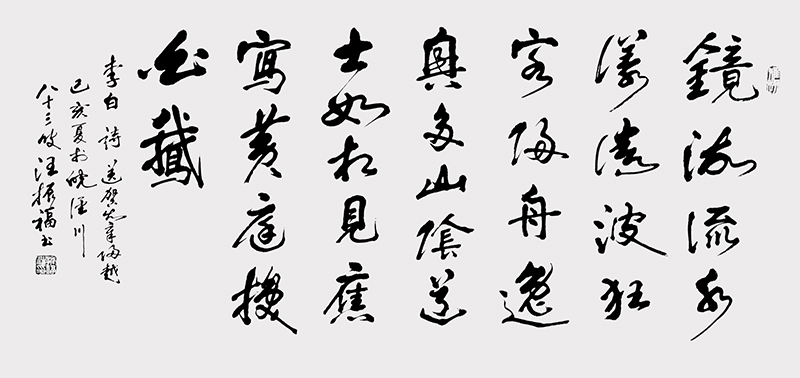 鏡湖流水
漾清波狂
客歸舟逸
興多山陰道
士如相見應
寫黃庭換
白鵝
李白詩送賀知章歸越
己亥夏於皖涇川
八十三叟汪振福書